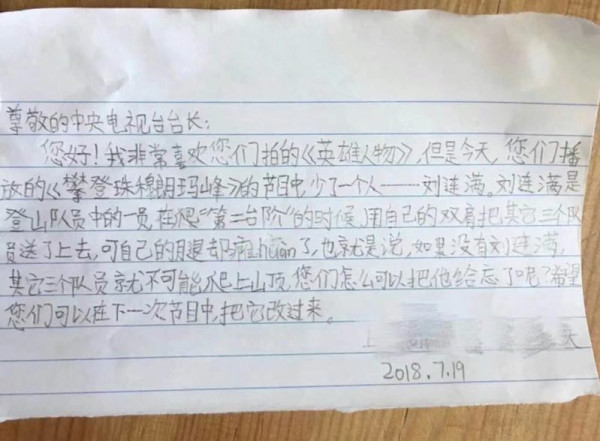 尊敬的中央电视台台长:
您好!我非常喜欢您们拍的《英雄人物》,但是今天,您们播
放的《攀登珠穆朗玛峰》的节目中少了一个人——刘连满。刘连满是
登山队员中的一员,在爬“第二台阶”的时候,用自己的双肩把其它三个队
员送了上去,可自己的腿却瘫huàn了,也就是说,如果没有刘连满,
其它三个队员就不可能爬上山顶,您们怎么可以把他给忘了呢?希望
您们可以在下一次节目中,把它改过来。
2018.7.19